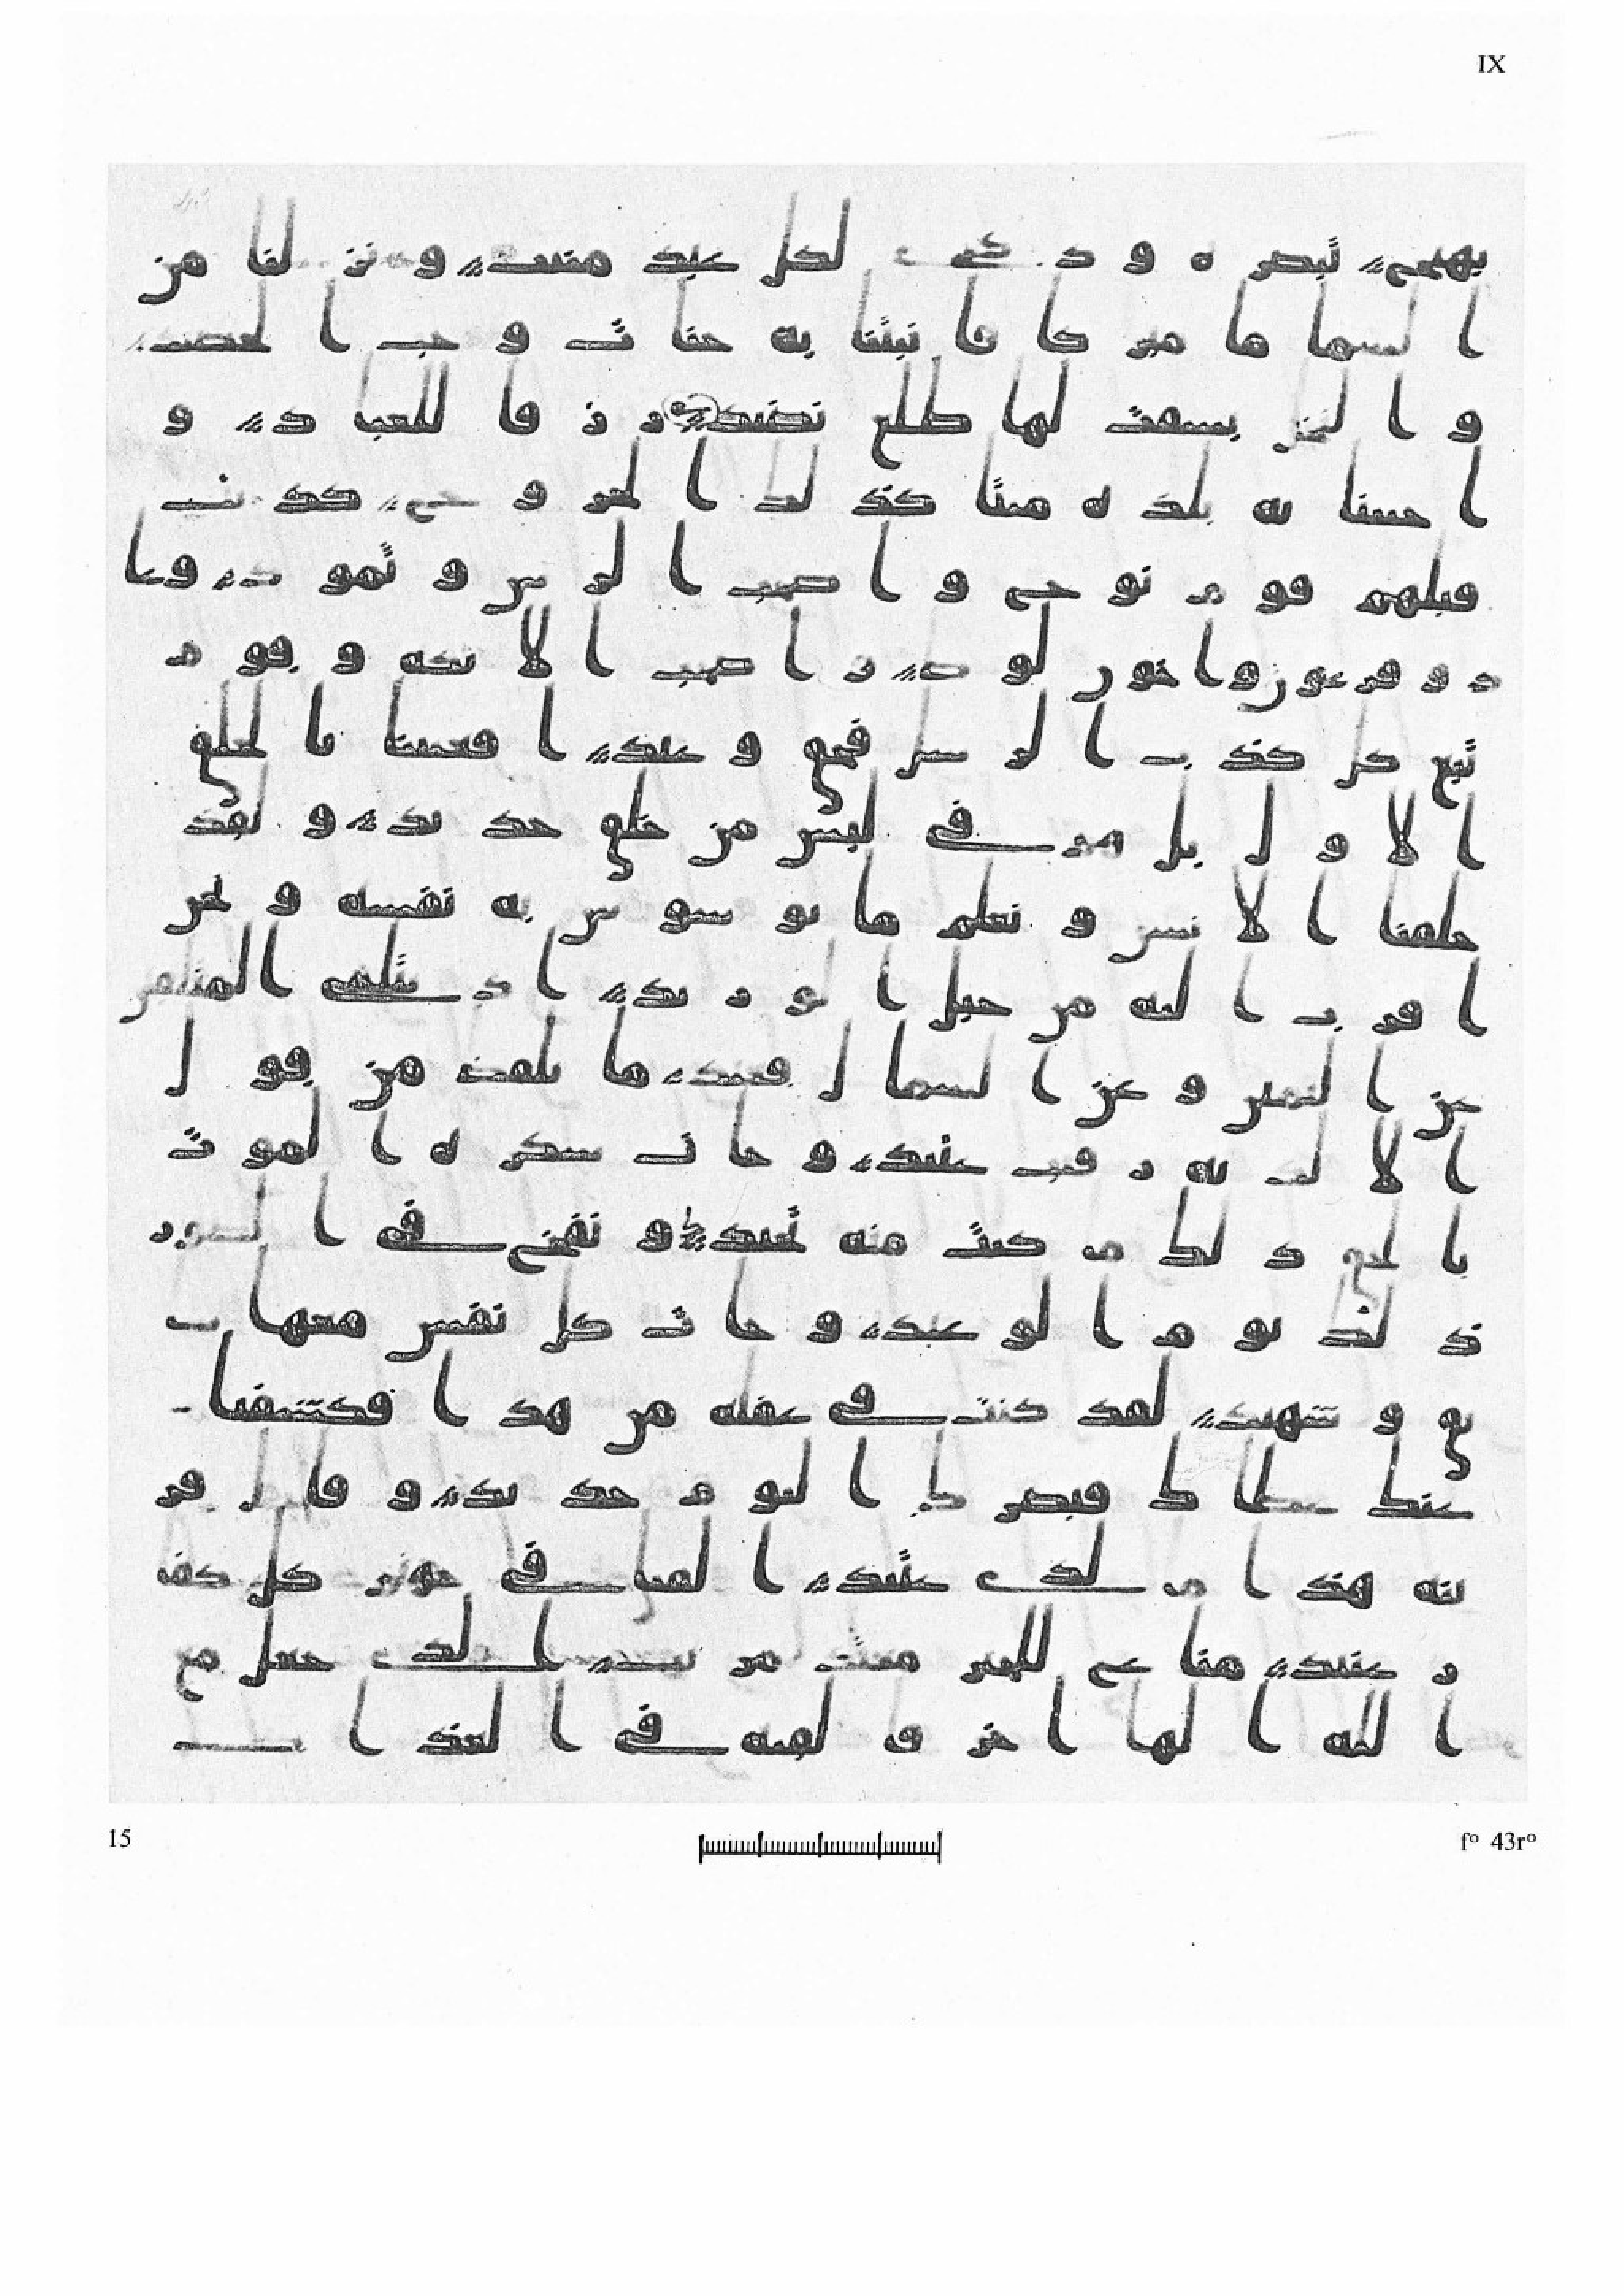 IX
بهيج تبصره و د كرى لكل عبد منيب و نز لنا من
ا لسما ما مبر كا فا نبتنا به جنا ت و حب ا لحصيد
و ا لنخل بسقت لها طلع نضيد ر ز قا للعبا د و
ا حيينا به بلد ه ميتا كذ لك ا لخر و ج كذ بت
قبلهم قو م نو ح و ا صحب ا لر س و ثمو د وعا
د و فر عو ن وا خو ن لو ط و ا صحب ا لا يكه و قو م
تبع كل كذ ب ا لر سل فحق و عيد ا فعيينا با لخلق
ا لا و ل بل هم في لبس من خلق جد يد و لقد
خلقنا ا لا نسن و نعلم ما تو سو س به نفسه و نحن
ا قر ب ا ليه من حبل ا لو ر يد ا ذ يتلقى ا لمتلقين
عن ا ليمين و عن ا لشما ل قعيد ما يلفظ من قو ل
ا لا لد يه ر قيب عتيد و جا ت سكر ه ا لمو ت
با لحق ذ لك م كنت منه تحيد و نفخ في ا لصور
ذ لك يو م ا لو عيد و جا ت كل نفس معها س
يق و شهيد لقد كنت في غفله من هذ ا فكشفنا
عنك غطا ك فبصر ك ا ليو م حد يد و قا ل قر
ينه هذ ا م لدى عتيد ا لقيا في جهنم كل كفا
ر عنيد منا ع للخير معتد مر يب ا لذى جعل مع
ا لله ا لها ا خر فا لقيه في ا لعذ ا ب
15
fº 43rº